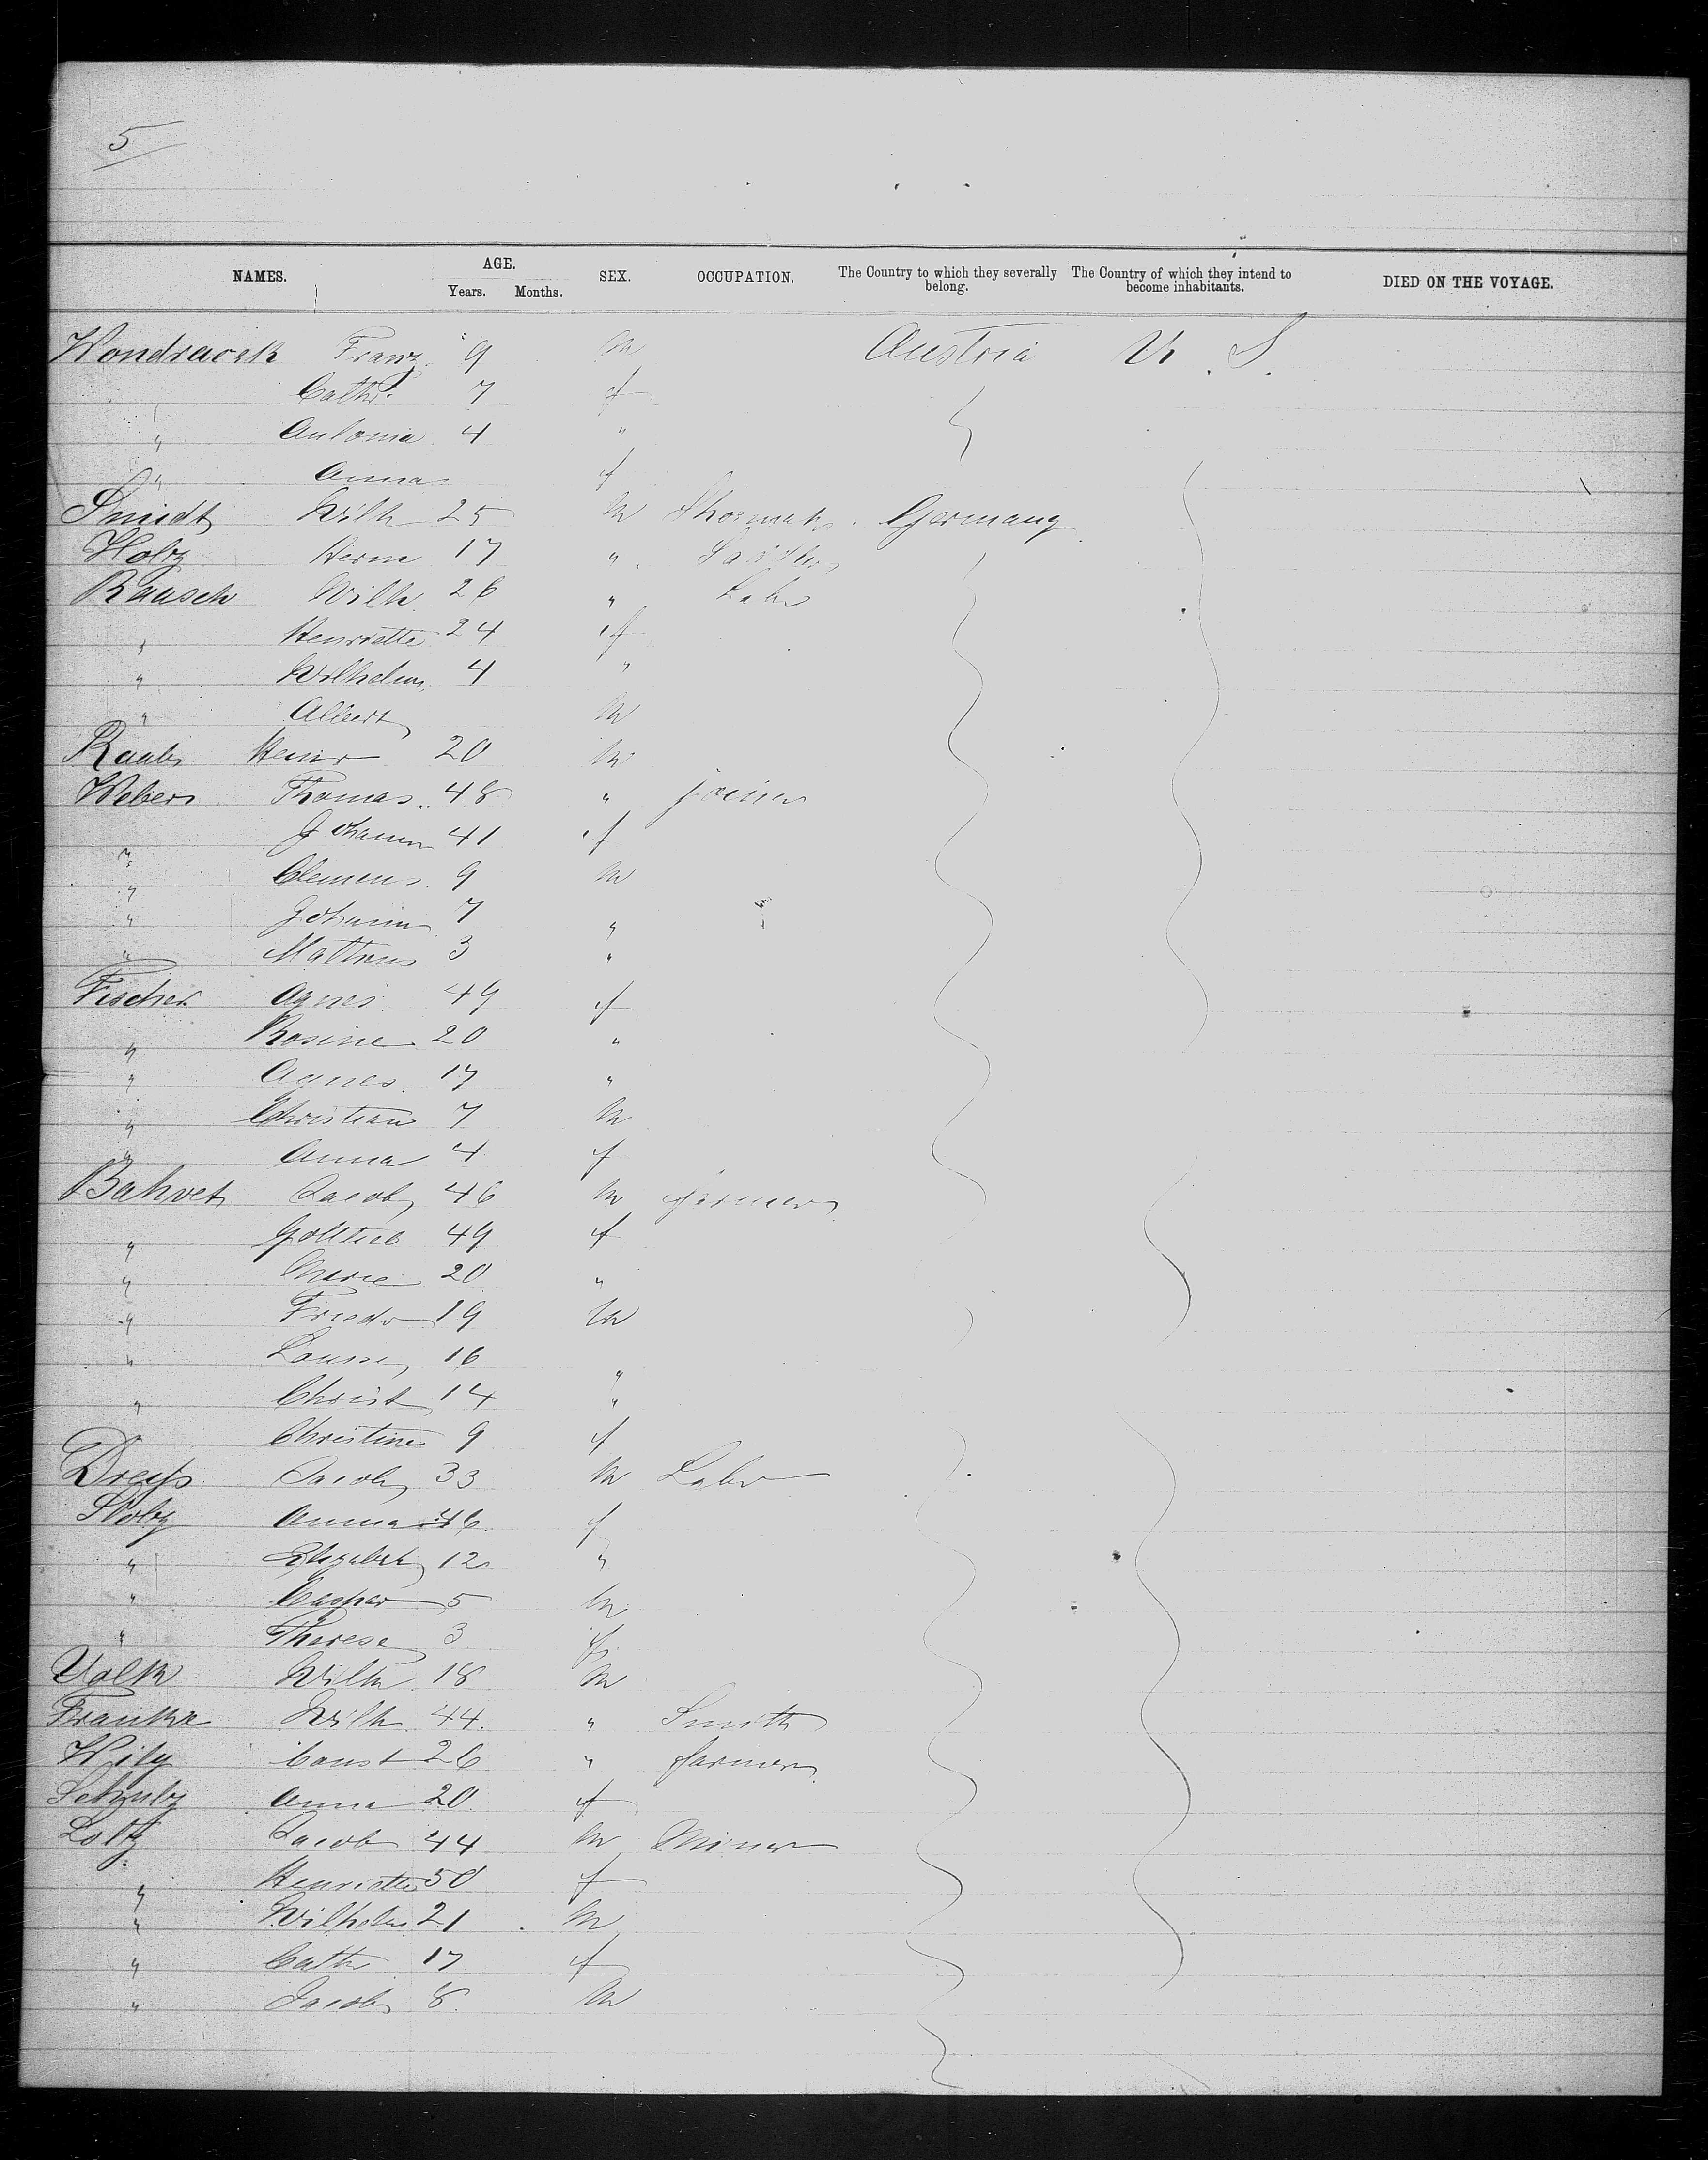 5
NAMES. AGE. Years. Months. SEX. OCCUPATION. The Country to which they severally belong. The Country of which they intend to become inhabitants. DIED ON THE VOYAGE.
Wondracek Franz 9 m Austria U. S.
Cathr. 7 f
" Antonia 4 "
" Anna f
Smidt Wilh 25 m Germany
Holz Herm 17 " Saddler
Raasch Wilh. 26 " Labr
" Henriette 24 f
" Wilhelm. 4 "
" Albert m
Raab Heinr 20 m
Weber Thomas. 48 " joiner
" Johann 41 f
" Clemens. 9 m
" Johann 7 "
" 3 "
Fischer Agnes 49 f
" Rosine 20 "
" Agnes. 17 "
" Christian 7 m
" Anna 4 f
Jacob 46 m farmer
" Gottlieb 49 f
" Marie 20 "
" Friedr 19 m
" Louise 16 "
" Christ 14 "
Christine 9 f
Jacob 33 m Labr
Anna 46. f
" Elizabet 12 "
" Caspar 5 m
" Therese 3. f
Volk Wilh. 18 m
Franke Wilh. 44. " Smith
Const 26 " farmer
Anna 20. f
Loltz Jacob 44 m Miner
" Henriette 50 f
" Wilhelm 21 m
" Cath 17 f
" Jacob 8. m